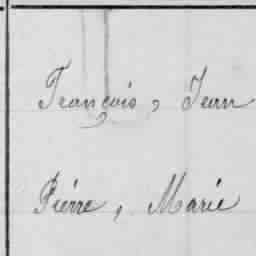 François, Jean
Pierre, Marie